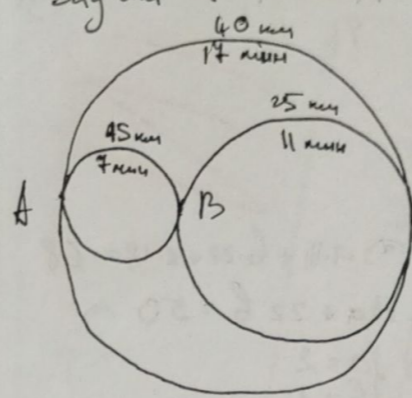 40 км
17 мин
25 км
11 мин
15 км
7 мин
A
B